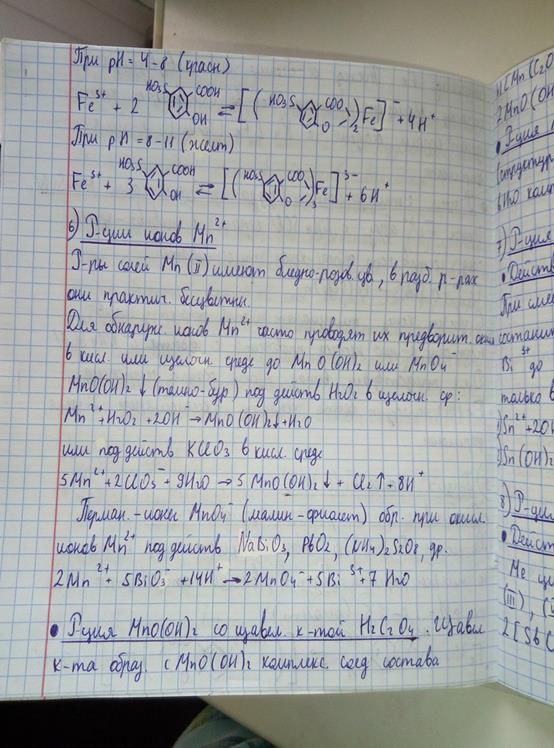 При pH = 4-8 (красн)
HO3S COOH HO3S COO
Fe 3+ + 2 OH ⇌ [( O )2 Fe] - + 4H+
При pH = 8-11 (желт)
HO3S COOH HO3S COO
Fe 3+ + 3 OH ⇌ [( O )3 Fe] 3- + 6H+
6) Р-ции ионов Mn 2+
Р-ры солей Mn (II) имеют бледно-розов. цв., в разб. р-рах
они практич. бесцветны.
Для обнаруж. ионов Mn 2+ часто проводят их предворит. окисл
в кисл. или щелочн. среде до MnO(OH)2 или MnO4-
MnO(OH)2 ↓ (темно-бур) под действ H2O2 в щелочн. ср:
Mn 2+ + H2O2 + 2OH- → MnO(OH)2↓ + H2O
или под действ KClO3 в кисл. среде
5Mn 2+ + 2ClO3- + 9H2O → 5 MnO(OH)2↓ + Cl2↑ + 8H+
Перман.-ионы MnO4- (малин-фиолет) обр. при окисл.
ионов Mn 2+ под действ. NaBiO3, PbO2, (NH4)2S2O8, др.
2Mn 2+ + 5BiO3- + 14H+ → 2MnO4- + 5Bi 3+ + 7 H2O
• Р-ция MnO(OH)2 со щавел. к-той H2C2O4. Щавел
к-та образ. с MnO(OH)2 комплекс. соед состава
[Mn(C2O
2MnO(OH
• Р-ция
7) Р-ция
• Действ
При сме
Bi 3+ до
только в
Sn 2+ + 2OH
Sn(OH)2
8) Р-ция
• Действ
Me ци
(III), (
2[Sb C